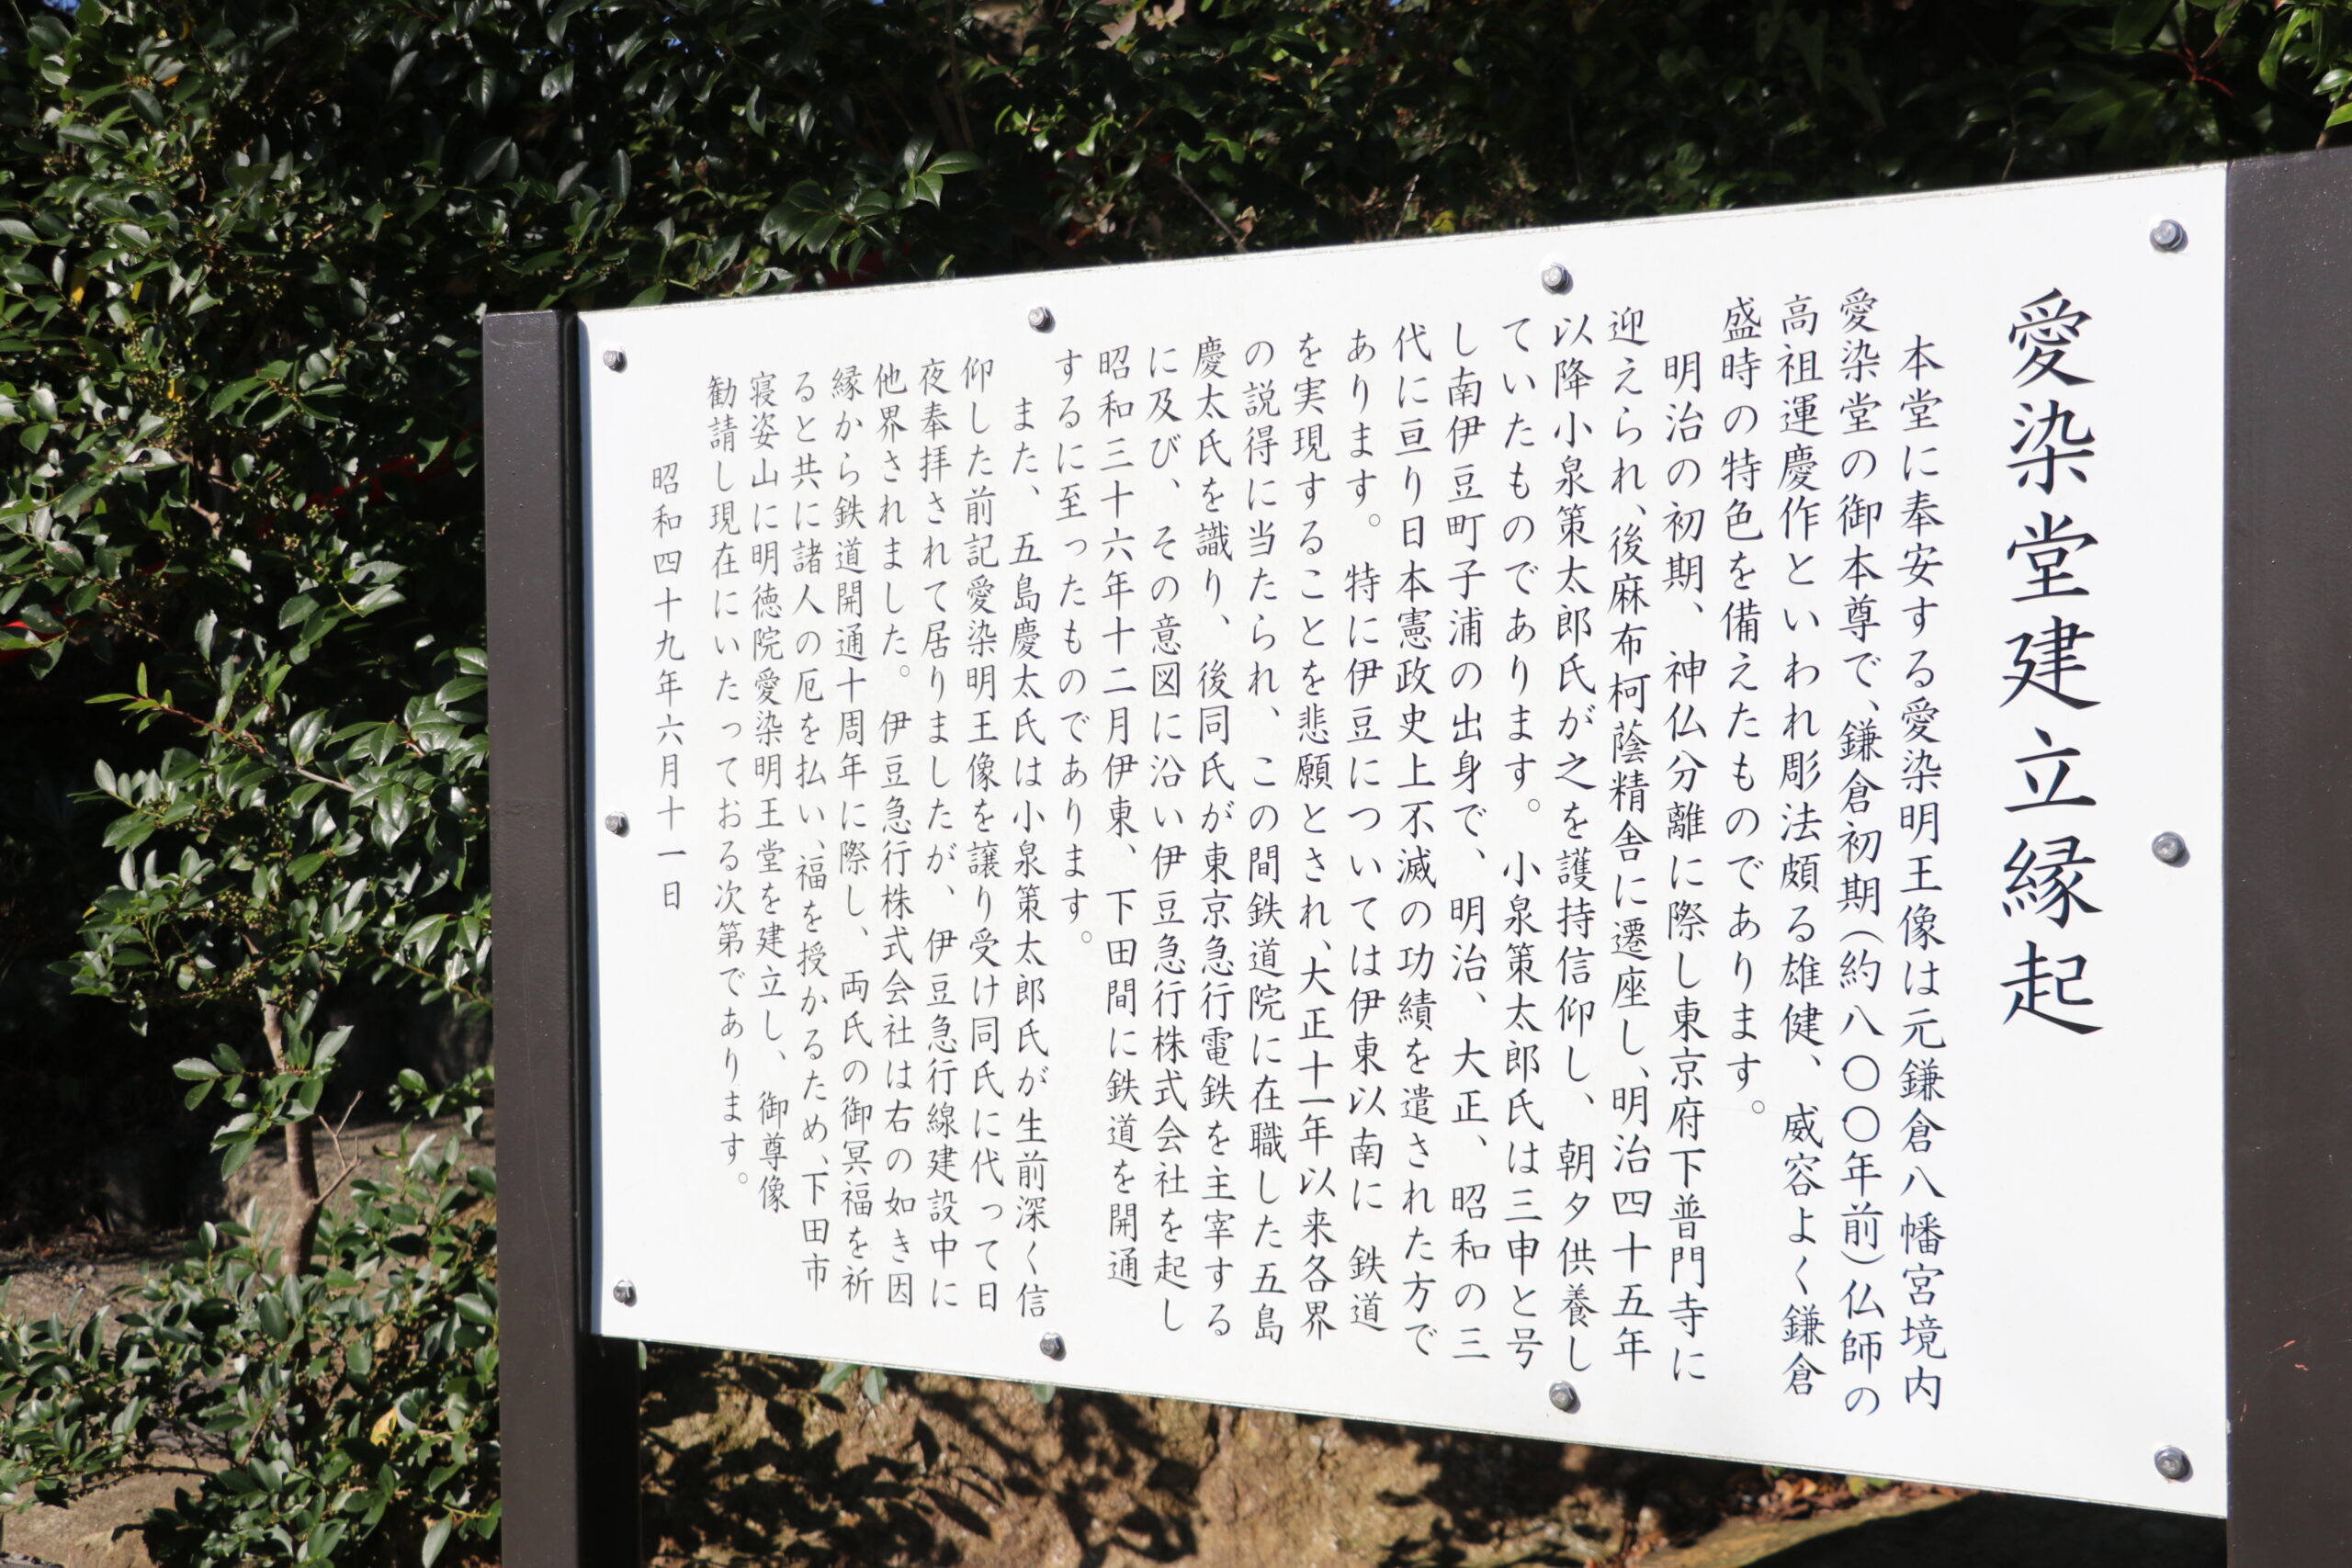 愛染堂建立縁起
本堂に奉安する愛染明王像は元鎌倉八幡宮境内
愛染堂の御本尊で、鎌倉初期（約八〇〇年前）仏師の
高祖運慶作といわれ彫法頗る雄健、威容よく鎌倉
盛時の特色を備えたものであります。
明治の初期、神仏分離に際し東京府下普門寺に
迎えられ、後麻布柯蔭精舎に遷座し、明治四十五年
以降小泉策太郎氏が之を護持信仰し、朝夕供養し
ていたものであります。小泉策太郎氏は三申と号
し南伊豆町子浦の出身で、明治、大正、昭和の三
代に亘り日本憲政史上不滅の功績を遺された方で
あります。特に伊豆については伊東以南に鉄道
を実現することを悲願とされ、大正十一年以来各界
の説得に当たられ、この間鉄道院に在職した五島
慶太氏を識り、後同氏が東京急行電鉄を主宰する
に及び、その意図に沿い伊豆急行株式会社を起し
昭和三十六年十二月伊東、下田間に鉄道を開通
するに至ったものであります。
また、五島慶太氏は小泉策太郎氏が生前深く信
仰した前記愛染明王像を譲り受け同氏に代って日
夜奉拝されて居りましたが、伊豆急行線建設中に
他界されました。伊豆急行株式会社は右の如き因
縁から鉄道開通十周年に際し、両氏の御冥福を祈
ると共に諸人の厄を払い、福を授かるため、下田市
寝姿山に明徳院愛染明王堂を建立し、御尊像
勧請し現在にいたっておる次第であります。
昭和四十九年六月十一日